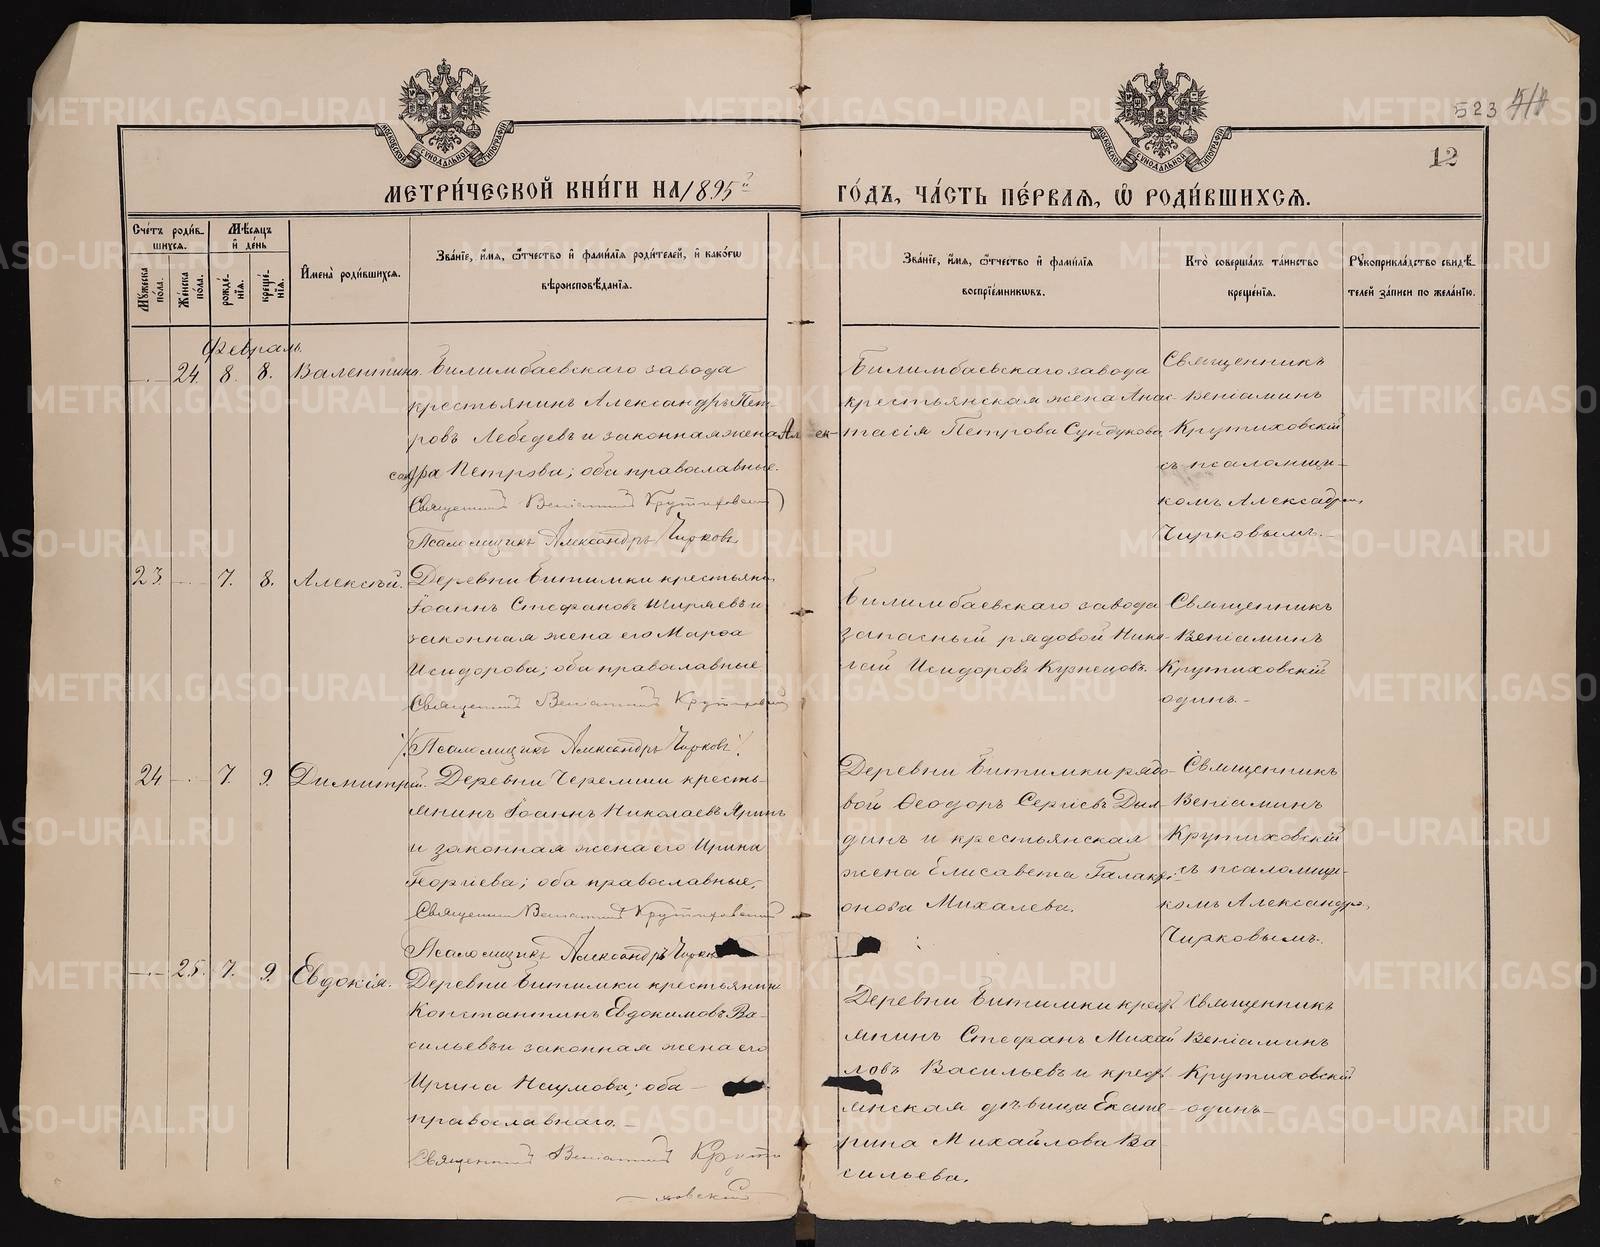 523
12
МОСКОВСКОЙ СѴНОДАЛЬНОЙ ТИПОГРАФІИ
МОСКОВСКОЙ СѴНОДАЛЬНОЙ ТИПОГРАФІИ
МЕТРИ́ЧЕСКОЙ КНИ́ГИ НА 1895й
ГО́ДЪ, ЧА́СТЬ ПЕ́РВАЯ, Ѡ҆ РОДИ́ВШИХСЯ.
Сче́тъ роди́вшихся.
Мѣ́сяцъ и҆ де́нь
Мꙋ́жеска по́ла.
Же́нска по́ла.
рожде́нїя.
креще́нїя.
И҆мена̀ роди́вшихся.
Зва́нїе, и҆́мя, ѻ҆́тчество и҆ фами́лїя роди́телей, и҆ како́гѡ
вѣроисповѣ́данїя.
Зва́нїе, и҆́мя, ѻ҆́тчество и҆ фами́лїя
воспрїе́мникѡвъ.
Кто̀ соверша́лъ та́инство
креще́нїя.
Рꙋкоприкла́дство свидѣ́телей за́писи по жела́нїю.
Февраль.
24. 8. 8. Валентина. Билимбаевскаго завода
крестьянинъ Александръ Пет-
ровъ Лебедевъ и законная жена Алек-
сандра Петрова; оба православные.
Священникъ Веніаминъ Крутиховскій
Псаломщикъ Александръ Чирковъ
Билимбаевскаго завода
крестьянская жена Анас-
тасія Петрова Сундукова
Священникъ
Веніаминъ
Крутиховскій
съ псаломщи-
комъ Александром
Чирковымъ.
23. 7. 8. Алексѣй. Деревни Битимки крестьянин
Іоаннъ Стефановъ Ширяевъ и
законная жена его Марѳа
Исидорова; оба православные
Священникъ Веніаминъ Крутиховскій
Псаломщикъ Александръ Чирковъ
Билимбаевскаго завода
запасный рядовой Нико-
лай Исидоровъ Кузнецовъ.
Священникъ
Веніаминъ
Крутиховскій
одинъ.
24 7. 9. Димитрій. Деревни Черемши кресть-
янинъ Іоаннъ Николаевъ Яринъ
и законная жена его Ирина
Георгіева; оба православные.
Священникъ Веніаминъ Крутиховскій
Псаломщикъ Александръ Чирков
Деревни Битимки рядо-
вой Ѳеодоръ Сергіевъ Дыл-
динъ и крестьянская
жена Елисавета Галакті-
онова Михалева.
Священникъ
Веніаминъ
Крутиховскій
съ псаломщи-
комъ Александро
Чирковымъ.
25. 7. 9. Евдокія. Деревни Битимки крестьянинъ
Константинъ Евдокимовъ Ва-
сильевъ и законная жена его
Ирина Наумова; оба
православнаго.
Священникъ Веніаминъ Крути
ховскій
Деревни Битимки крест
янинъ Стефанъ Михай
ловъ Васильевъ и крест
янская дѣвица Екате-
рина Михайлова Ва-
сильева.
Священникъ
Веніаминъ
Крутиховскій
одинъ
METRIKI.GASO-URAL.RU